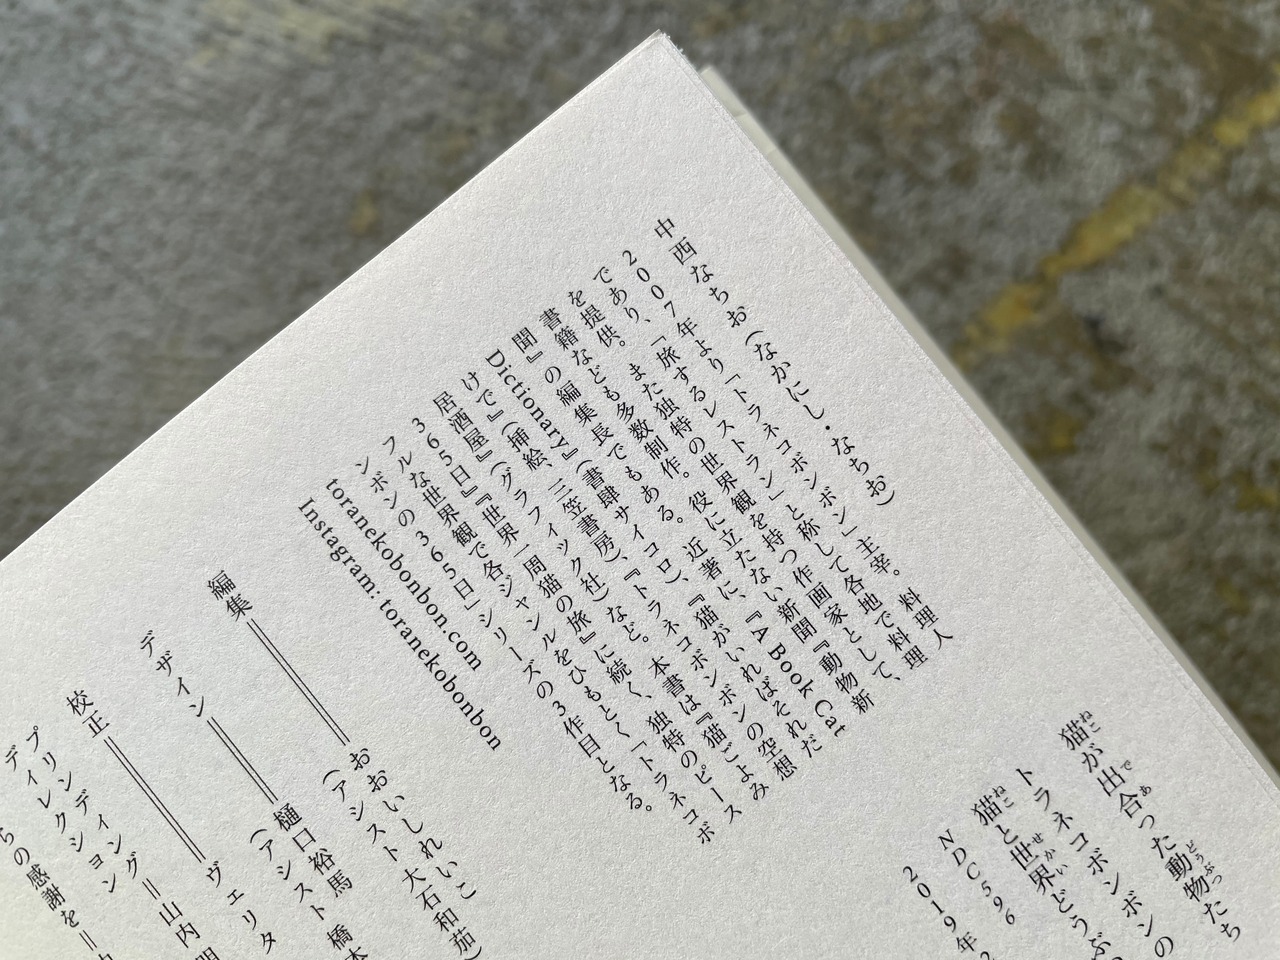 ねこ で あ どうぶつ
猫が出合った動物たち
トラネコボンボンの
ねこ せ かい
猫と世界どうぶ
NDC596
2019年2
中西なちお（なかにし・なちお）
2007年より「トラネコボンボン」主宰。料理人
であり、「旅するレストラン」と称して各地で料理
を提供。また独特の世界観を持つ作画家として、
書籍なども多数制作。役に立たない新聞『動物新
聞』の編集長でもある。近著に、『A Book Cat
Dictionary』（書肆サイコロ）、『猫がいればそれだ
けで』（挿絵、三笠書房）、『トラネコボンボンの空想
居酒屋』（グラフィック社）など。本書は『猫ごよみ
365日』『世界一周猫の旅』に続く、独特のピース
フルな世界観で各ジャンルをひもとく「トラネコボ
ンボンの365日」シリーズの3作目となる。
toranekobonbon.com
Instagram: toranekobonbon
編集══おおいしれいこ
（アシスト 大石和茄）
デザイン══樋口裕馬
（アシスト 橋本
校正══ヴェリタ
プリンティング
ディレクション＝山内
ちの感謝を＝